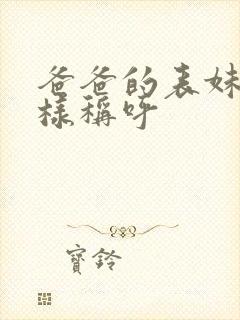 爸爸的表妹
樣稱呼
寶鈴